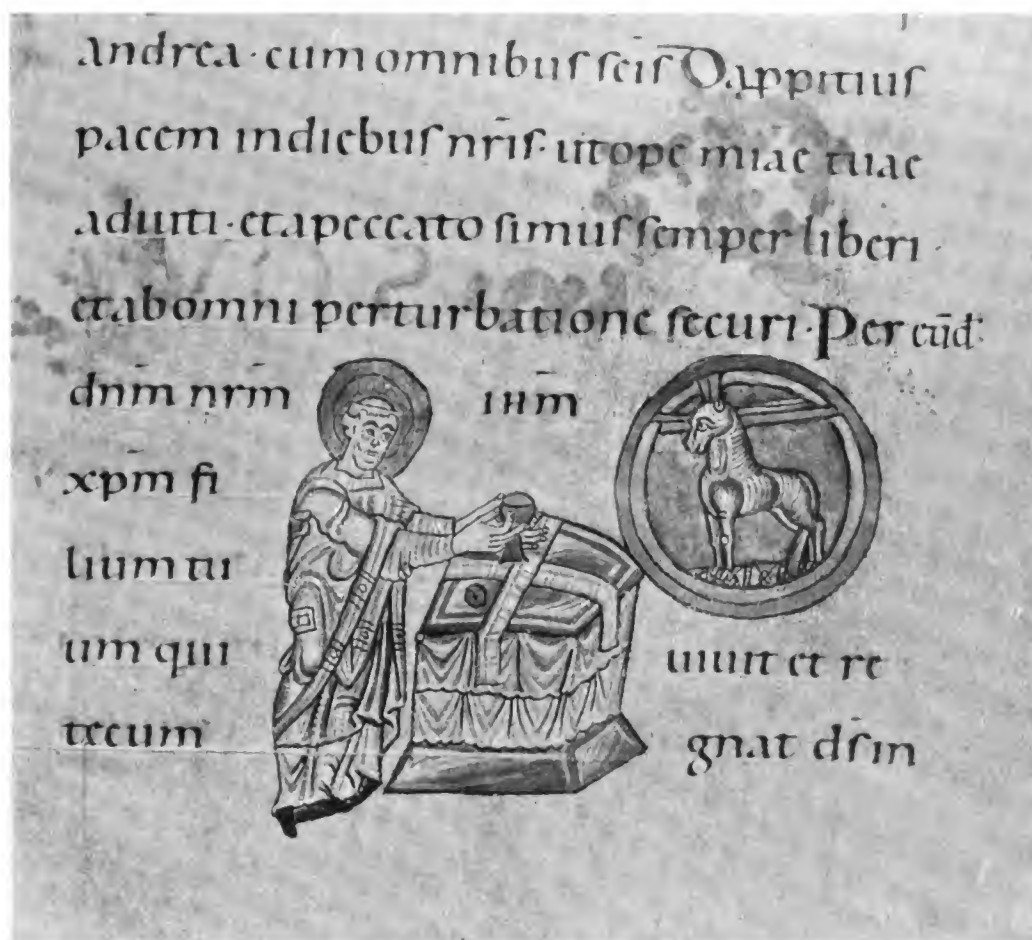 andrea · cum omnibus sc̄is Da ꝓpitius
pacem indiebus nr̄is · ut ope mīae tuae
adiuti · et apeccato simus semper liberi ·
et abomni perturbatione securi · Per eūd:
dnm̄ nrm̄ ihm̄
xpm̄ fi
lium tu
um qui uiuit et re
tecum gnat ds̄ in